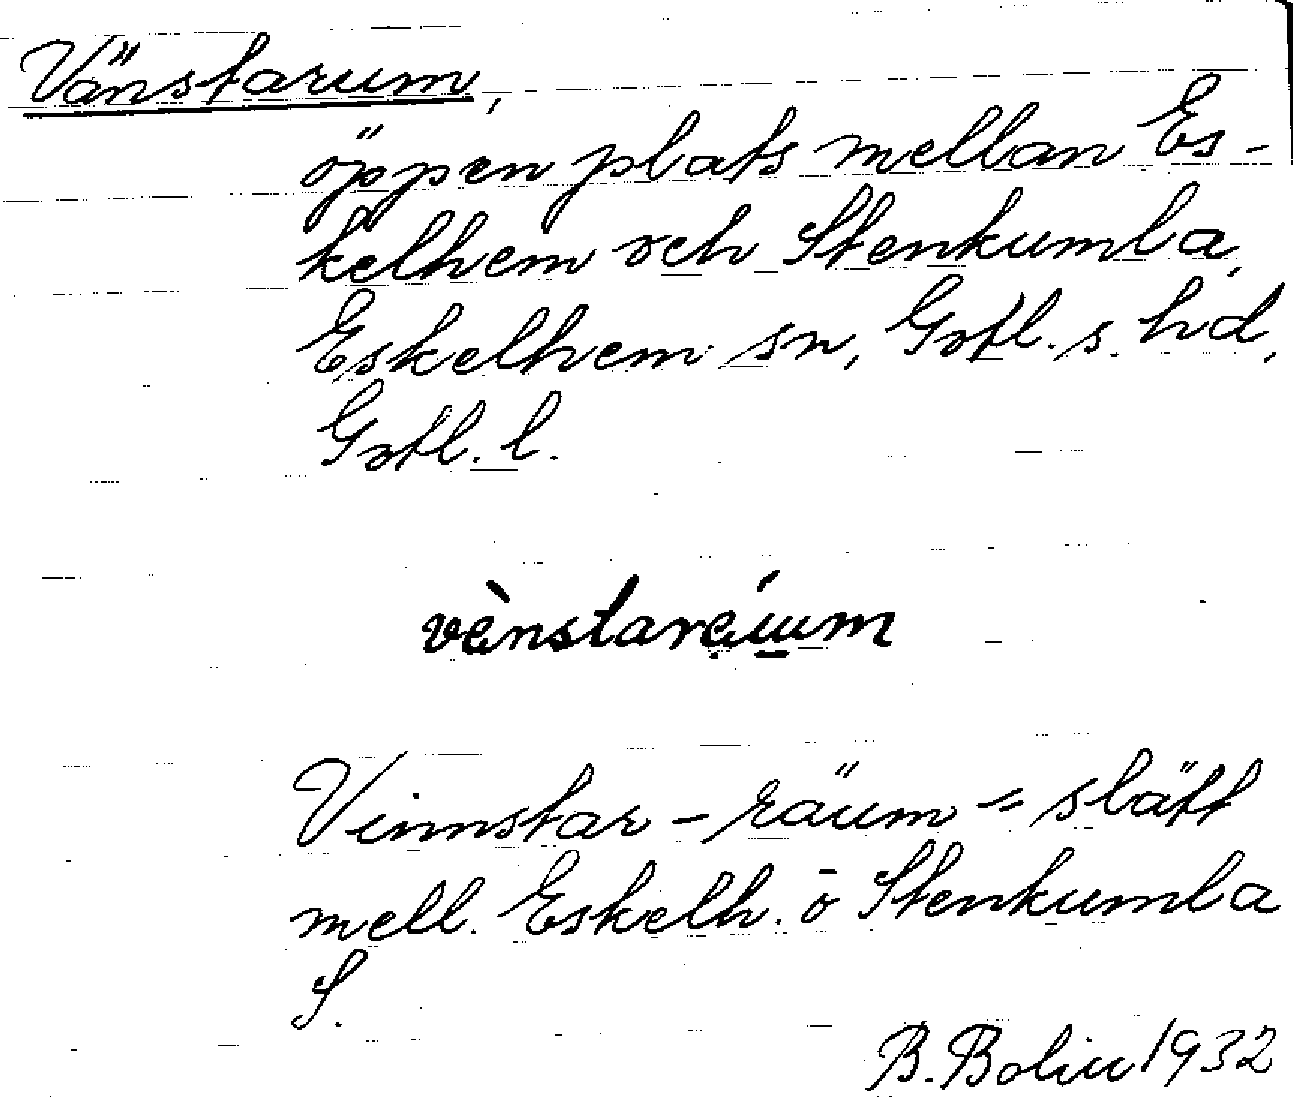 Vänstarum,
öppen plats mellan Es-
kelhem och Stenkumla,
Eskelhem sn, Gotl. s. hd,
Gotl. l.
vènstaréum
Vinnstar-räum = slätt
mell. Eskelh. ō Stenkumla
S.
B. Bolin 1932